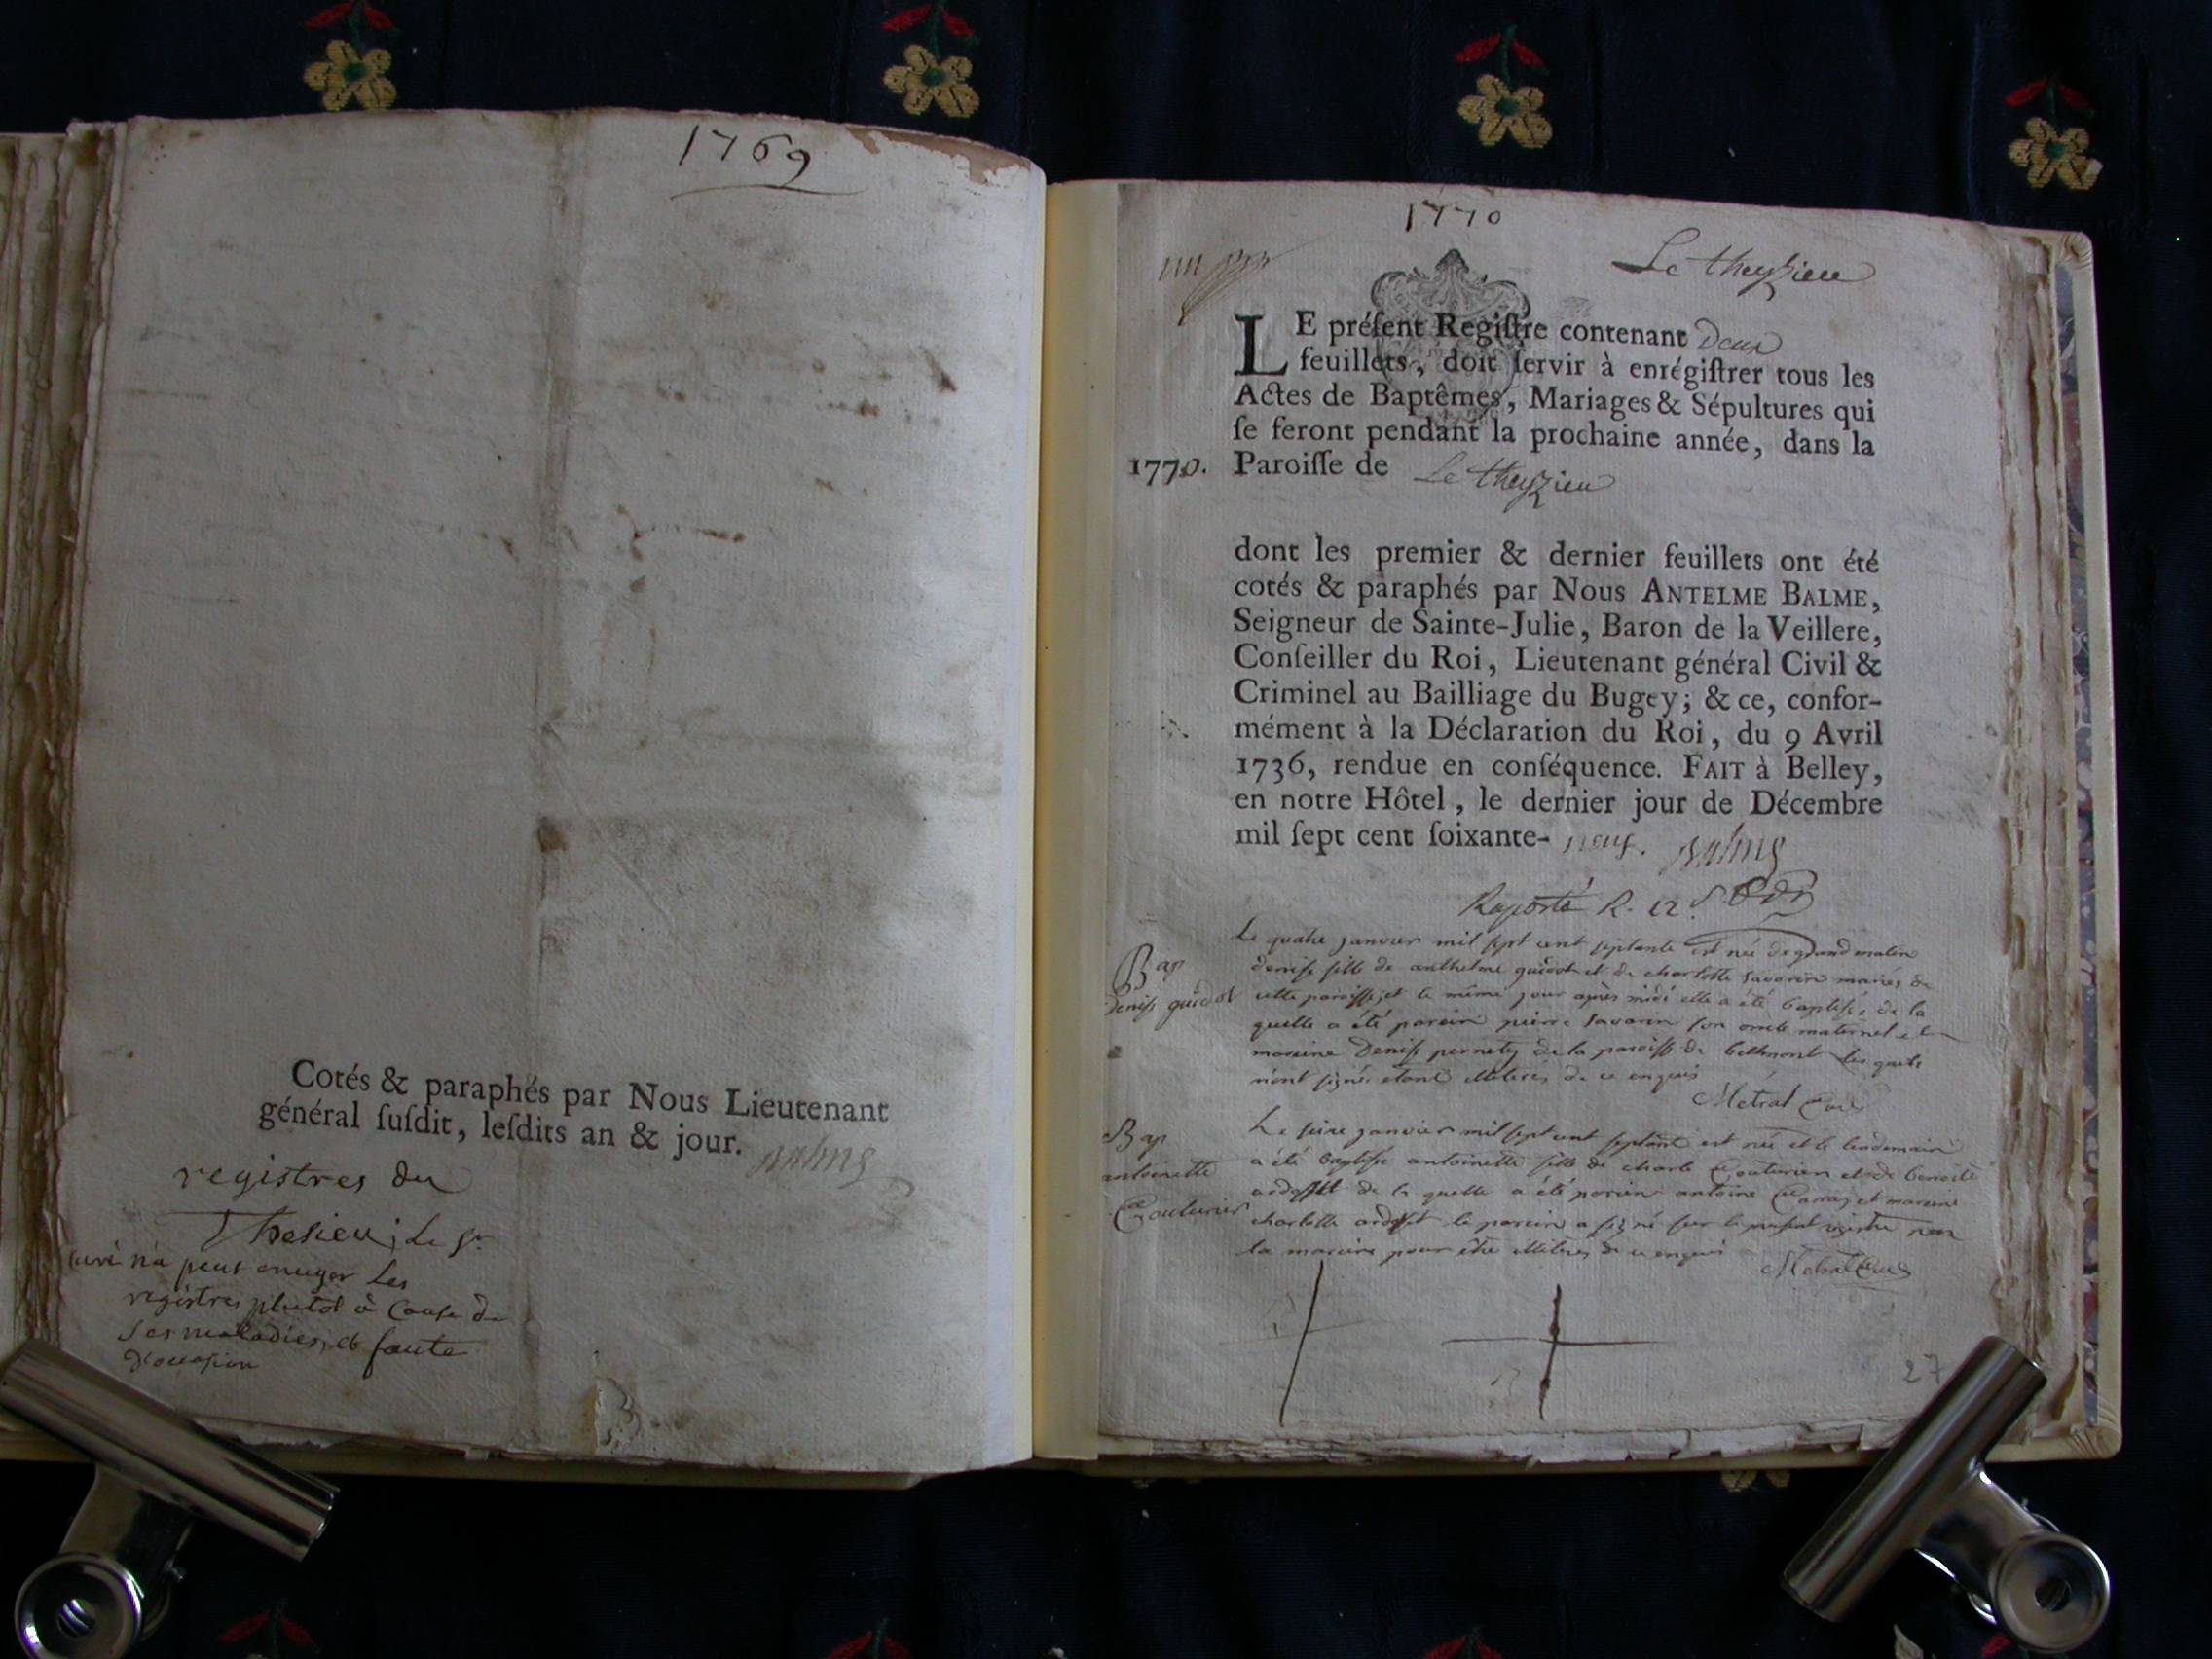 1769
Cotés & paraphés par Nous Lieutenant
général ſuſdit, leſdits an & jour. Balme
registres du
Thesieu; Le Sr
curé n'a peut envoyer Les
registres plutot à Cause de
Ses maladies, et faute
d'occasion
1770
Le theyzieu
LE préſent Regiſtre contenant deux
feuillets, doit ſervir à enrégiſtrer tous les
Actes de Baptêmes, Mariages & Sépultures qui
ſe feront pendant la prochaine année, dans la
1770. Paroiſſe de Le theyzieu
dont les premier & dernier feuillets ont été
cotés & paraphés par Nous ANTELME BALME,
Seigneur de Sainte-Julie, Baron de la Veillere,
Conſeiller du Roi, Lieutenant général Civil &
Criminel au Bailliage du Bugey; & ce, confor-
mément à la Déclaration du Roi, du 9 Avril
1736, rendue en conſéquence. FAIT à Belley,
en notre Hôtel, le dernier jour de Décembre
mil ſept cent ſoixante- neuf. Balme
Raporté R. 12 s.
Bap
Denise guidot
Le quatre janvier mil sept cent septante est née de grand matin
denise fille de anthelme guidot et de charlotte savarin mariés de
cette paroisse, et le même jour après midi elle a été baptisée, de la
quelle a été parein pierre savarin son oncle maternel et
mareine Denise pernety de la paroisse de bellmont les quels
n'ont signés etant illiterés de ce enquis
Metral Curé
Bap
antoinette
Couturier
Le seize janvier mil sept cent septante est née et le lendemain
a été baptisée antoinette fille de charle Couturier et de benoite
de la quelle a été parein antoine et mareine
charlotte le parein a signé sur le present registre non
la mareine pour être illitérée de ce enquise
Metral Curé
27